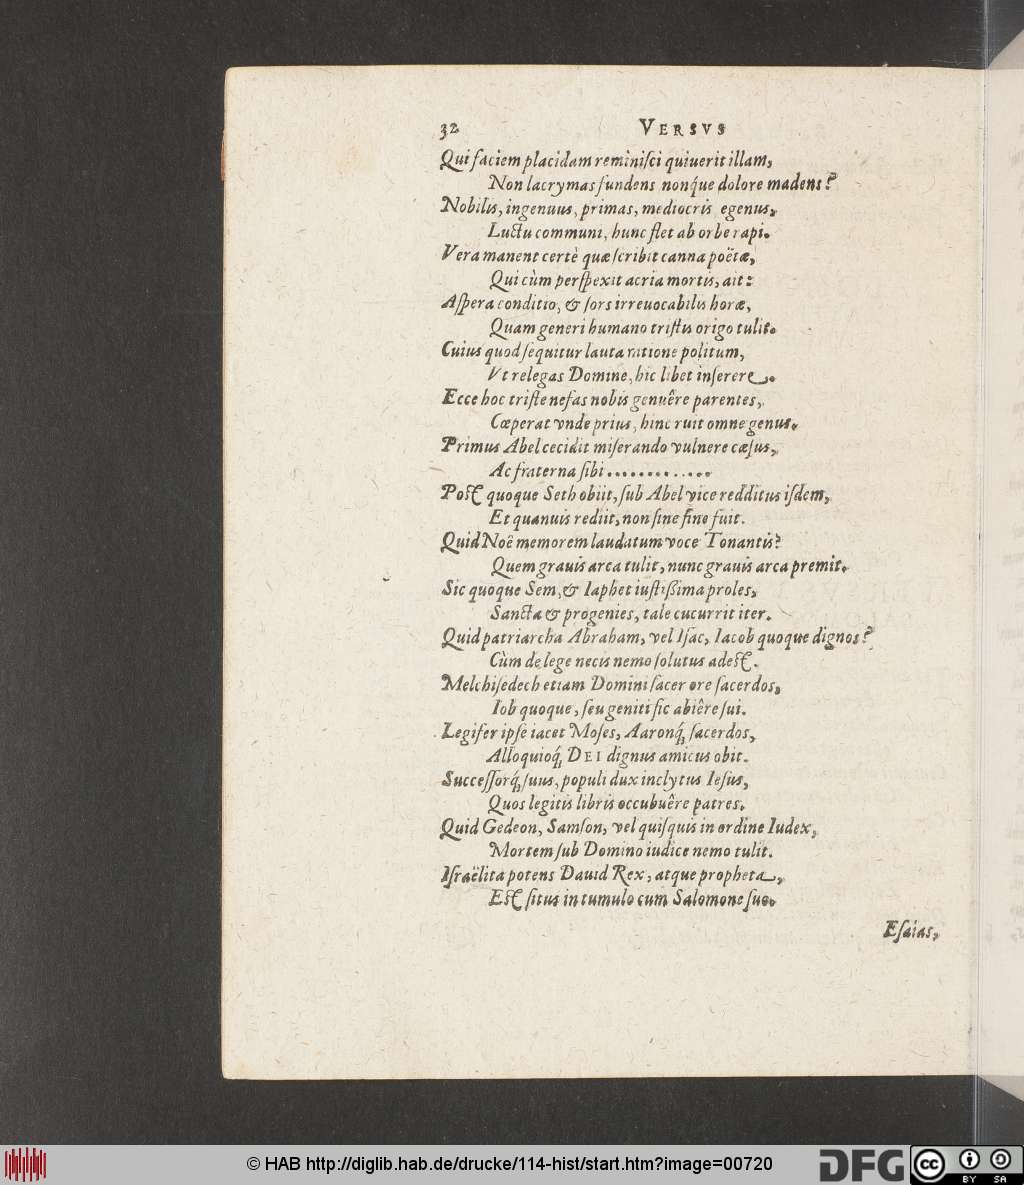 32 VERSVS
Qui faciem placidam reminiſci quiuerit illam,
Non lacrymas fundens nonq́ue dolore madens?
Nobilis, ingenuus, primas, mediocris, egenus,
Luctu communi, hunc flet ab orbe rapi.
Vera manent certè quæ ſcribit canna poëtæ,
Qui cùm perſpexit acria mortis, ait:
Aſpera conditio, & ſors irreuocabilis horæ,
Quam generi humano triſtis origo tulit.
Cuius quod ſequitur lauta ratione politum,
Vt relegas Domine, hic libet inſerere.
Ecce hoc triſte nefas nobis genuêre parentes,
Cœperat vnde prius, hinc ruit omne genus.
Primus Abel cecidit miſerando vulnere cæſus,
Ac fraterna ſibi.............
Poſt quoque Seth obiit, ſub Abel vice redditus iſdem,
Et quanuis rediit, non ſine fine fuit.
Quid Noê memorem laudatum voce Tonantis?
Quem grauis arca tulit, nunc grauis arca premit.
Sic quoque Sem, & Iaphet iuſtißima proles,
Sancta & progenies, tale cucurrit iter.
Quid patriarcha Abraham, vel Iſac, Iacob quoque dignos?
Cùm de lege necis nemo ſolutus adeſt.
Melchiſedech etiam Domini ſacer ore ſacerdos,
Iob quoque, ſeu geniti ſic abiêre ſui.
Legifer ipſe iacet Moſes, Aaronq́; ſacerdos,
Alloquioq́; DEI dignus amicus obit.
Succeſſorq́; ſuus, populi dux inclytus Ieſus,
Quos legitis libris occubuêre patres.
Quid Gedeon, Samſon, vel quiſquis in ordine Iudex,
Mortem ſub Domino iudice nemo tulit.
Iſraëlita potens Dauid Rex, atque propheta,
Eſt ſitus in tumulo cum Salomone ſuo.
Eſaias,
© HAB http://diglib.hab.de/drucke/114-hist/start.htm?image=00720
DFG
cc
BY SA